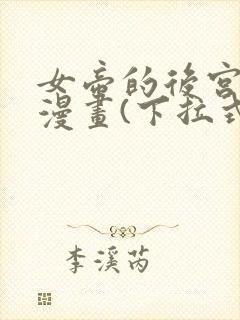 女帝的後宮
漫畫(下拉式
李溪芮